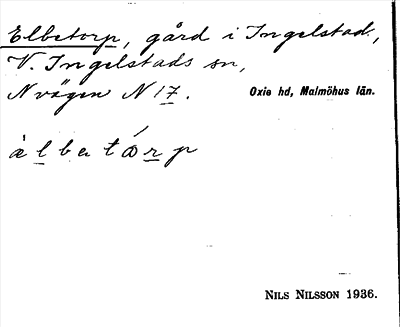 Elbetorp, gård i Ingelstad,
V. Ingelstads sn,
N vägen N 17.
Oxie hd, Malmöhus län.
àlbatórp
NILS NILSSON 1936.